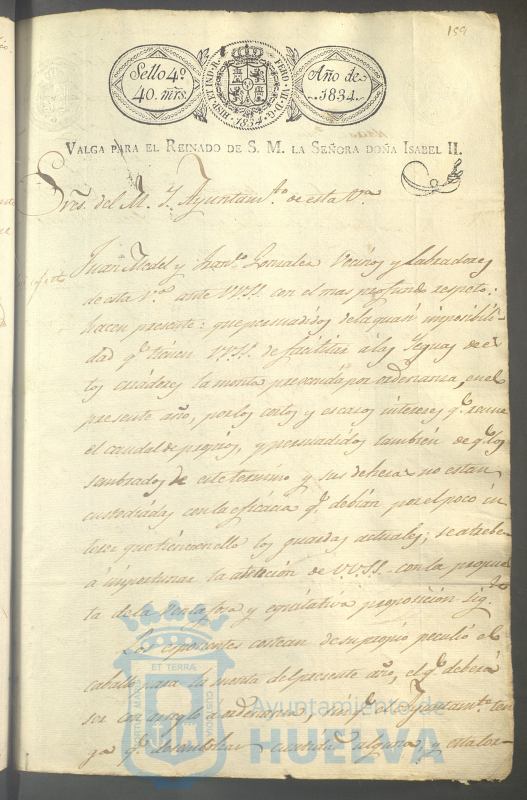 159
Sello 4º
40. mrs.
HISP. ET IND. R. FERD. VII. D. G. 1834
Año de
1834.
VALGA PARA EL REINADO DE S. M. LA SEÑORA DOÑA ISABEL II.
Sres. del M. Y. Ayuntamto. de esta Va.
Juan Model y Franco. Gonzales Vecinos y Labradores
de esta Va. ante VVSS. con el mas profundo respeto:
hacen presente: que persuadidos de la gran imposibili-
dad qe. tienen VVSS. de facilitar a las Yeguas de es
tos criadores la monta prevenida por ordenanza, en el
presente año, por los cortos y escasos intereses qe. reune
el caudal de propios, y persuadidos tambien de qe. los
sembrados de este termino y sus dehesas no estan
custodiadas con la eficacia qe. debian por el poco in
teres que tienen en ello los guardas actuales; se atreben
á importunar la atencion de VVSS. con la propues
ta de la ventajosa y equitativa proposicion sigte.
Los esponentes costean de su propio peculio el
caballo para la monta del presente año, el qe. deberá
ser con arreglo a ordenanza, sin qe. el Ayuntamto. ten
ga qe. desembolsar cantidad alguna, y estalo-
ET TERRÆ
PORTUS MARIS
CUSTODIA
Ayuntamiento de
HUELVA